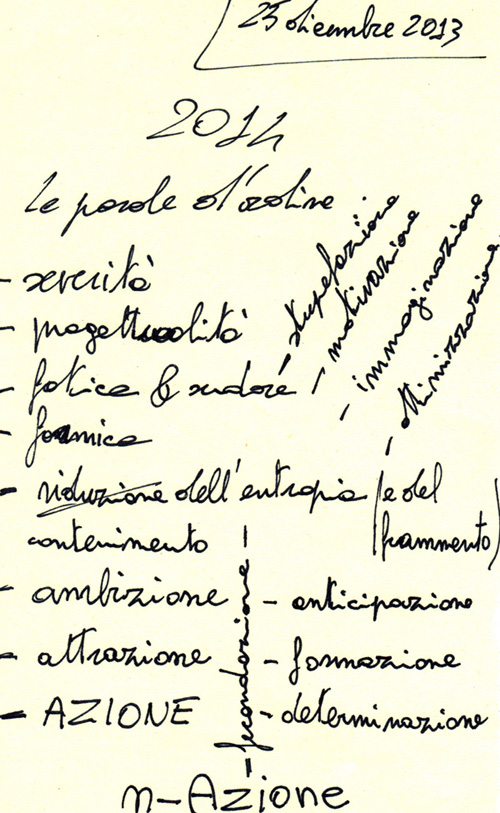 25 dicembre 2013
2014
Le parole d'ordine
- severità
- progettualità
- fatica & sudore
- formica
- riduzione dell'entropia (e del frammento)
contenimento
- ambizione
- attrazione
- AZIONE
- stupefazione
- motivazione
- immaginazione
- ottimizzazione
- fecondazione -
- anticipazione
- formazione
- determinazione
n-Azione